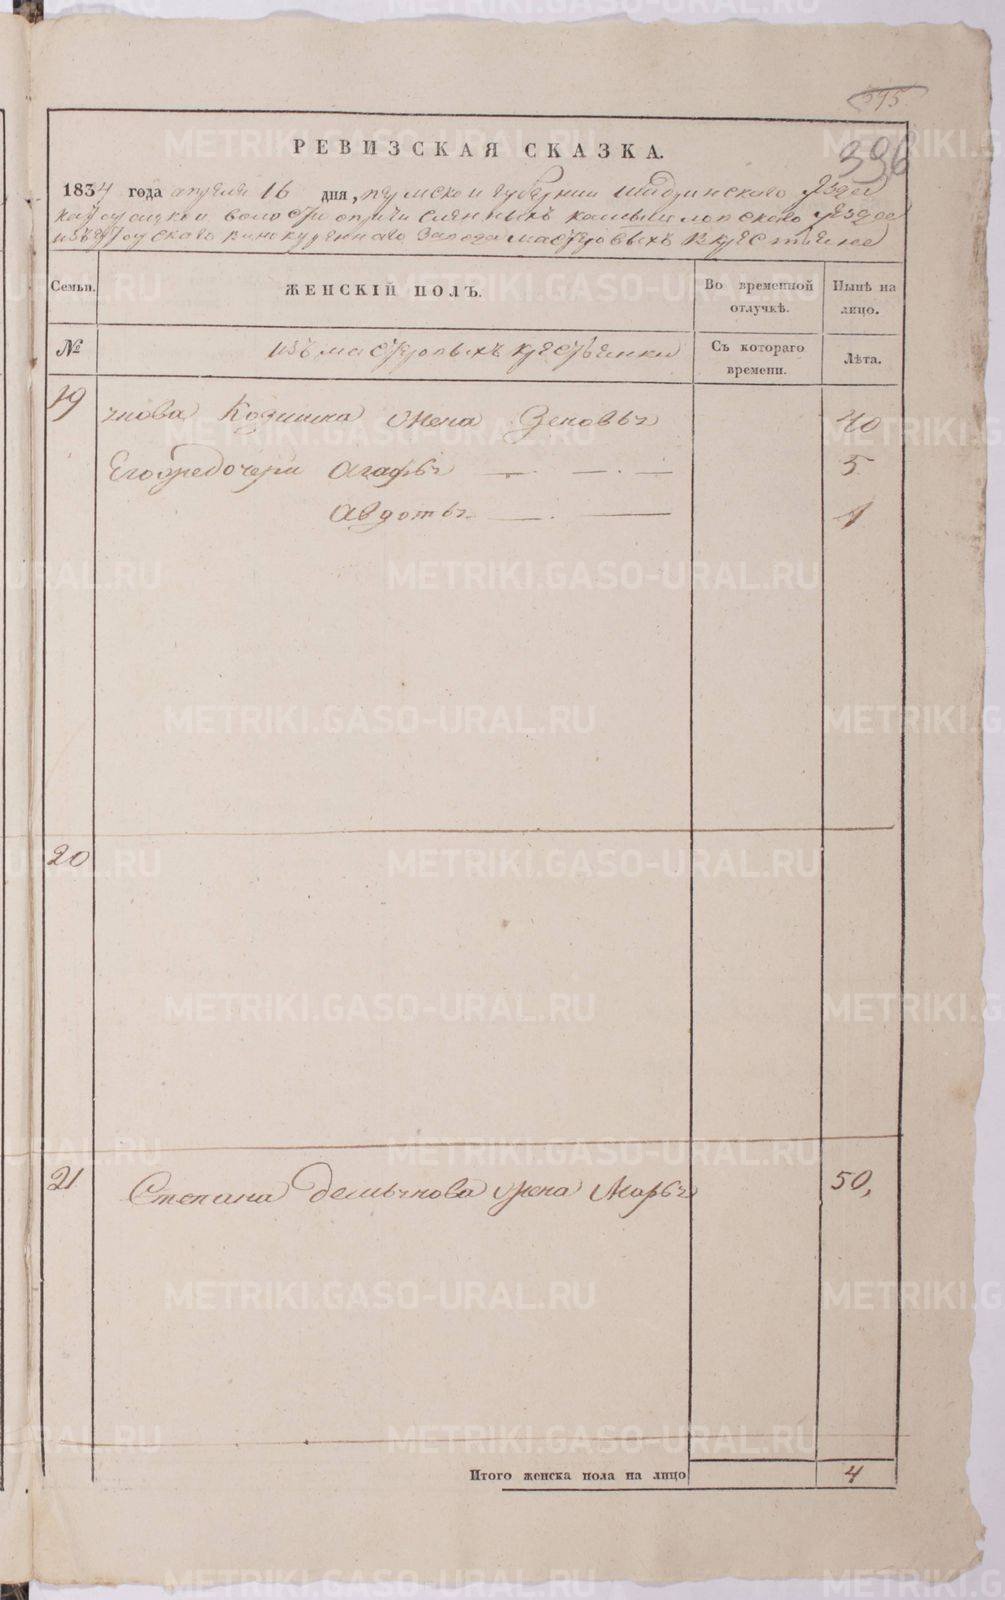 395
396
РЕВИЗСКАЯ СКАЗКА.
1834 года апреля 16 дня, пермской губернии шадринского уезда
волости причисленныхъ камышловского уезда
винокуреннаго завода мастеровыхъ вкрестьяне
Семьи. ЖЕНСКІЙ ПОЛЪ. Во временной отлучкѣ. Нынѣ на лицо.
№ изъ мастеровыхъ крестьянки Съ котораго времени. Лѣта.
19 Козмина жена Зеновья 40
Его дочери Агафья 5
Авдотья 1
20
21 Степана Демьянова жена Марья 50,
Итого женска пола на лицо 4
METRIKI.GASO-URAL.RU